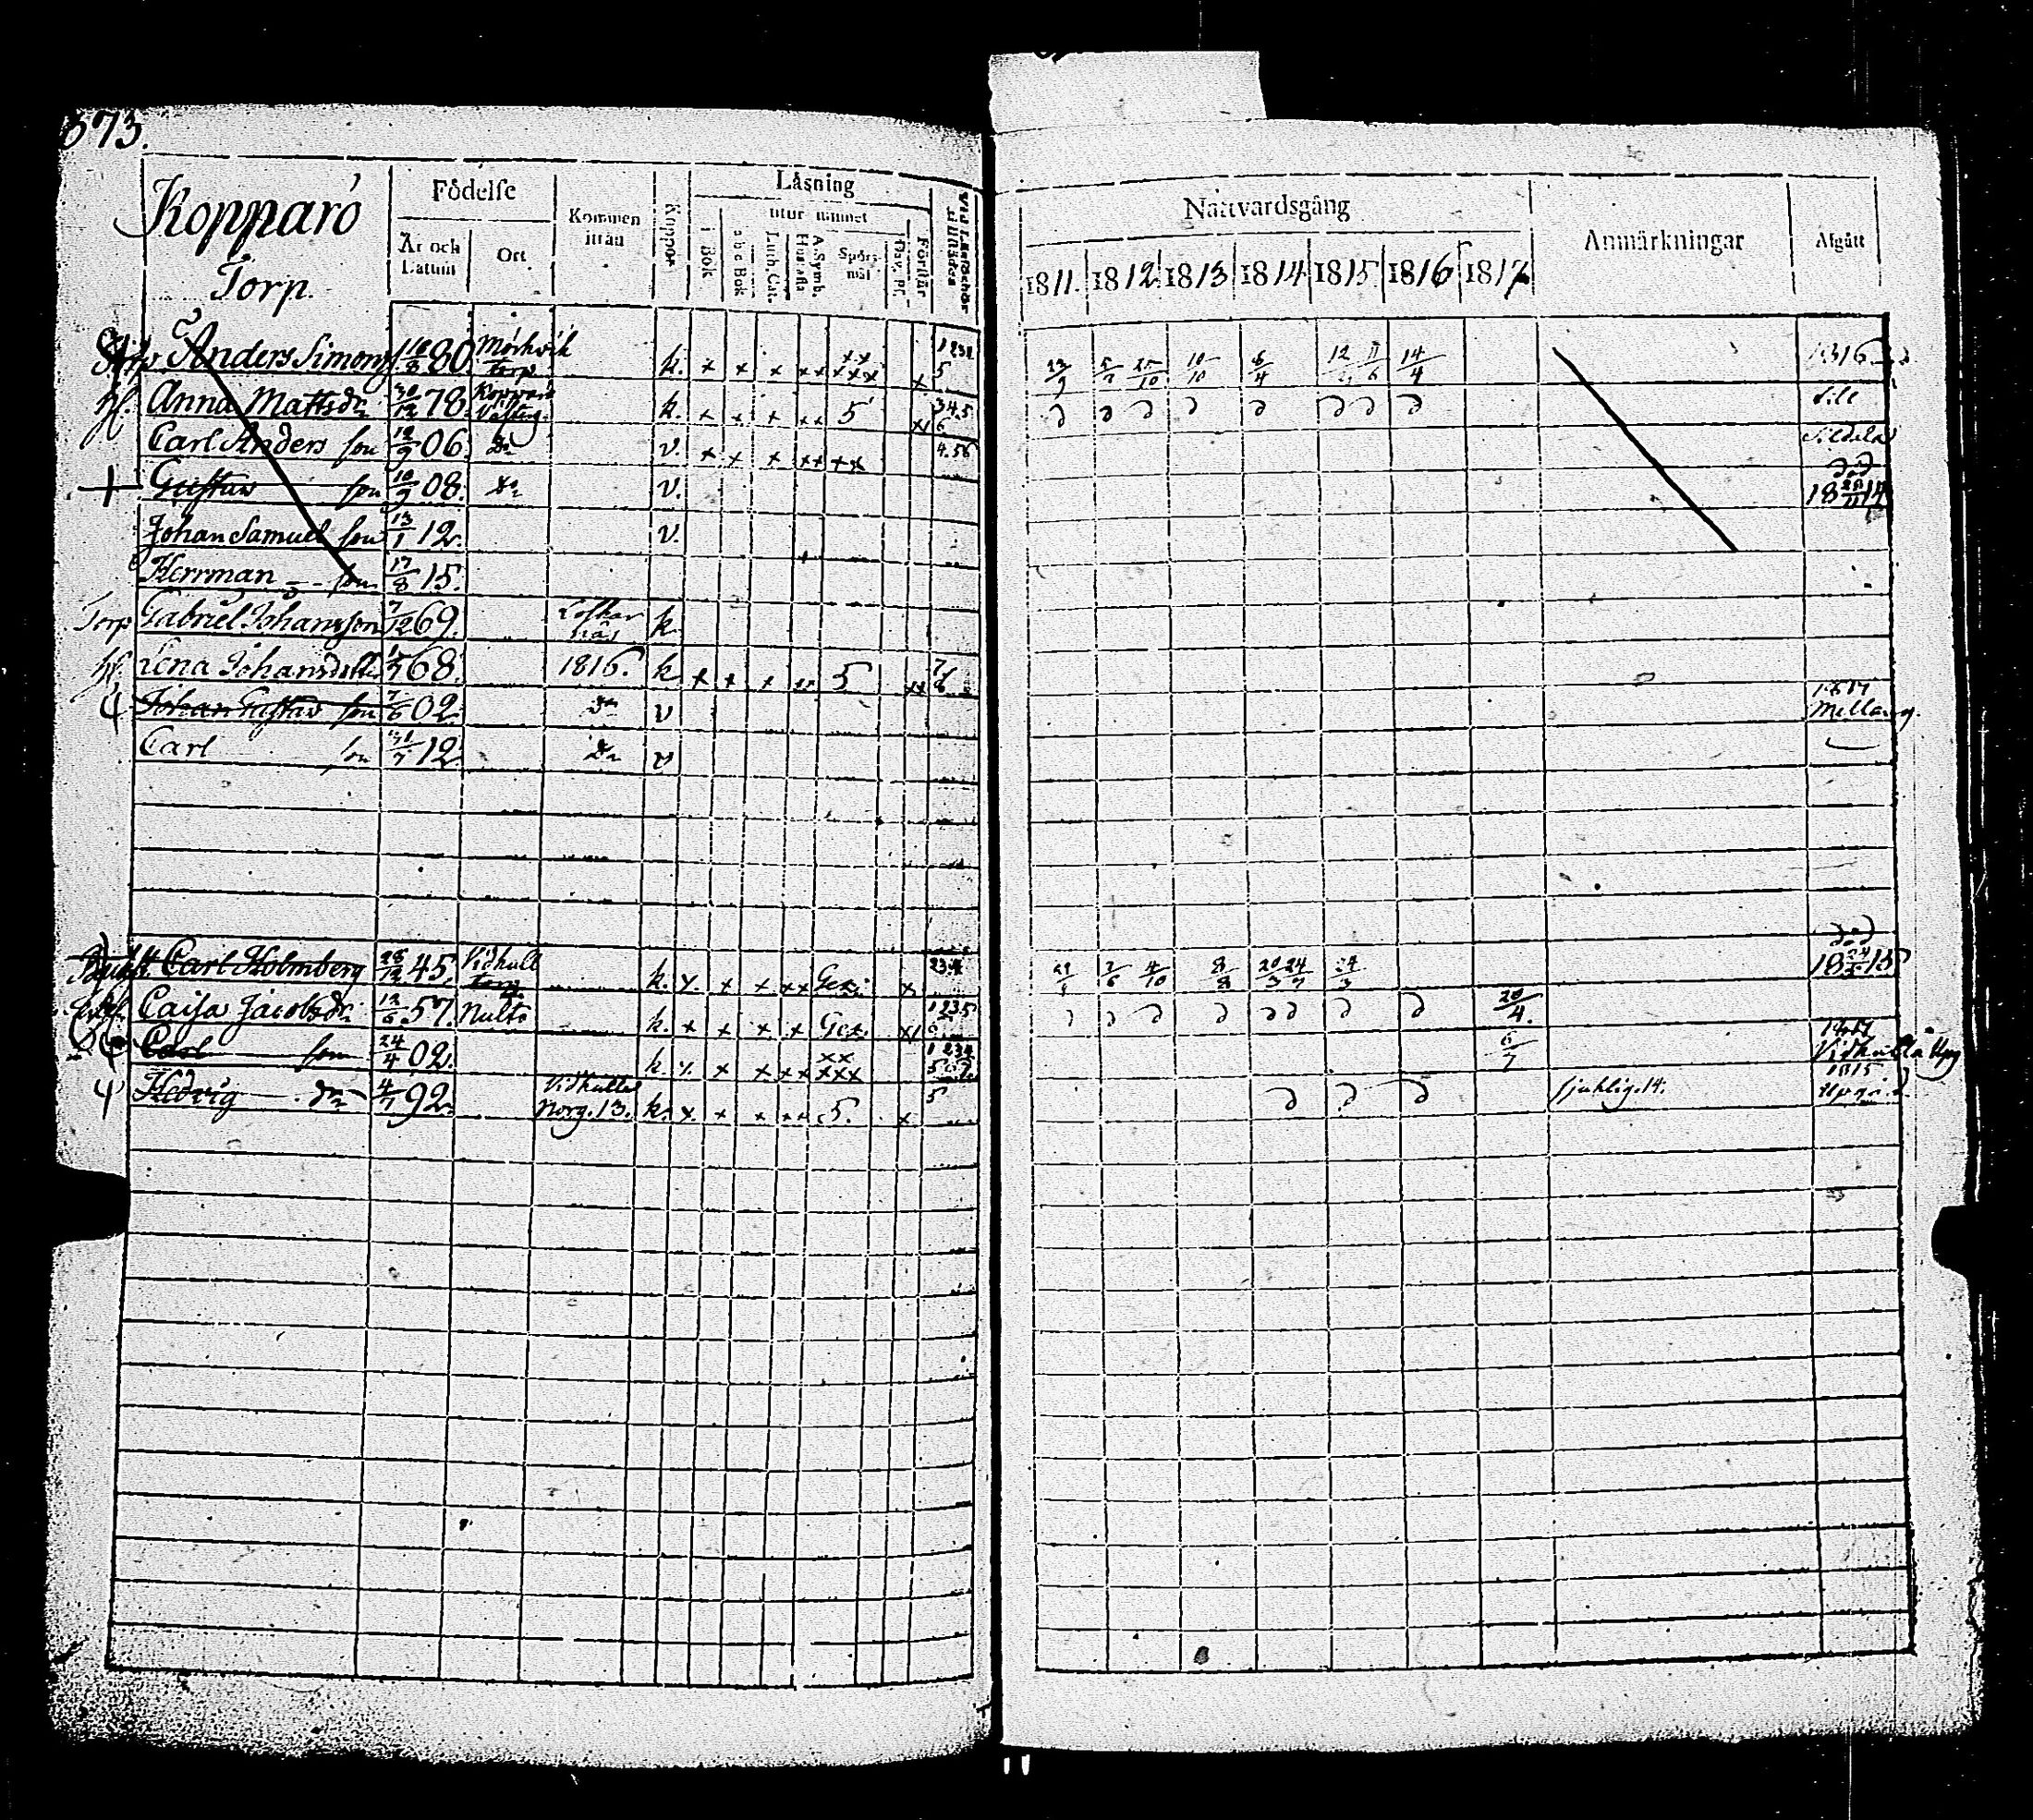 373.
Kopparö
Torp.
Födelse
År och Datum
Ort
Kommen ifrån
Koppor
Läsning
utur minnet
i Bok
a b c Bok
Luth. Cat.
A. Symb. Hustafla
Spörsmål
Dav. Ps.
Förstår
Nattvardsgång
1811. 1812. 1813 1814 1815. 1816 1817
Anmärkningar
Afgått
Anders Simons 16/8 80 Mörkvik torp k. x x x xx xx xxx x 1234 5 5/7 25/10 10/10 6/4 12 11/6 14/4 1816
hf. Anna Mattsdr 30/12 78. Kopparö k. x x x xx 5 xx 34.5 6 till
Carl Anders son 12/9 06 Do v. x x x xx xx 4.56
+ Gustav son 10/9 08. Do v. död 18 14
Johan Samuel son 13/1 12. v.
Herrman son 17/8 15.
Torp Gabriel Johansson 7/12 69. k
hf. Lena Johansdotter 68. 1816. k x x x xx 5 xx
Johan Gustav son 7/6 02. do v 1817
Carl son 12 Do v
Carl Holmberg 28/12 45. Vidhull torp k. x. x x xx x 234 2/6 4/10 8/8 24/3 död 18 15
Caisa Jacobsdr 12/6 57. Nulto k. x x x x x 1235 6 20/4.
Carl son 24/4 02. k x. x x xx xx xxx 1234 6/7 1817 Vidhulla
Hedvig dr 4/7 92. Vidhulla Norg. 13. k. x. x x xx 5. x 5 sjuklig. 14. 1815